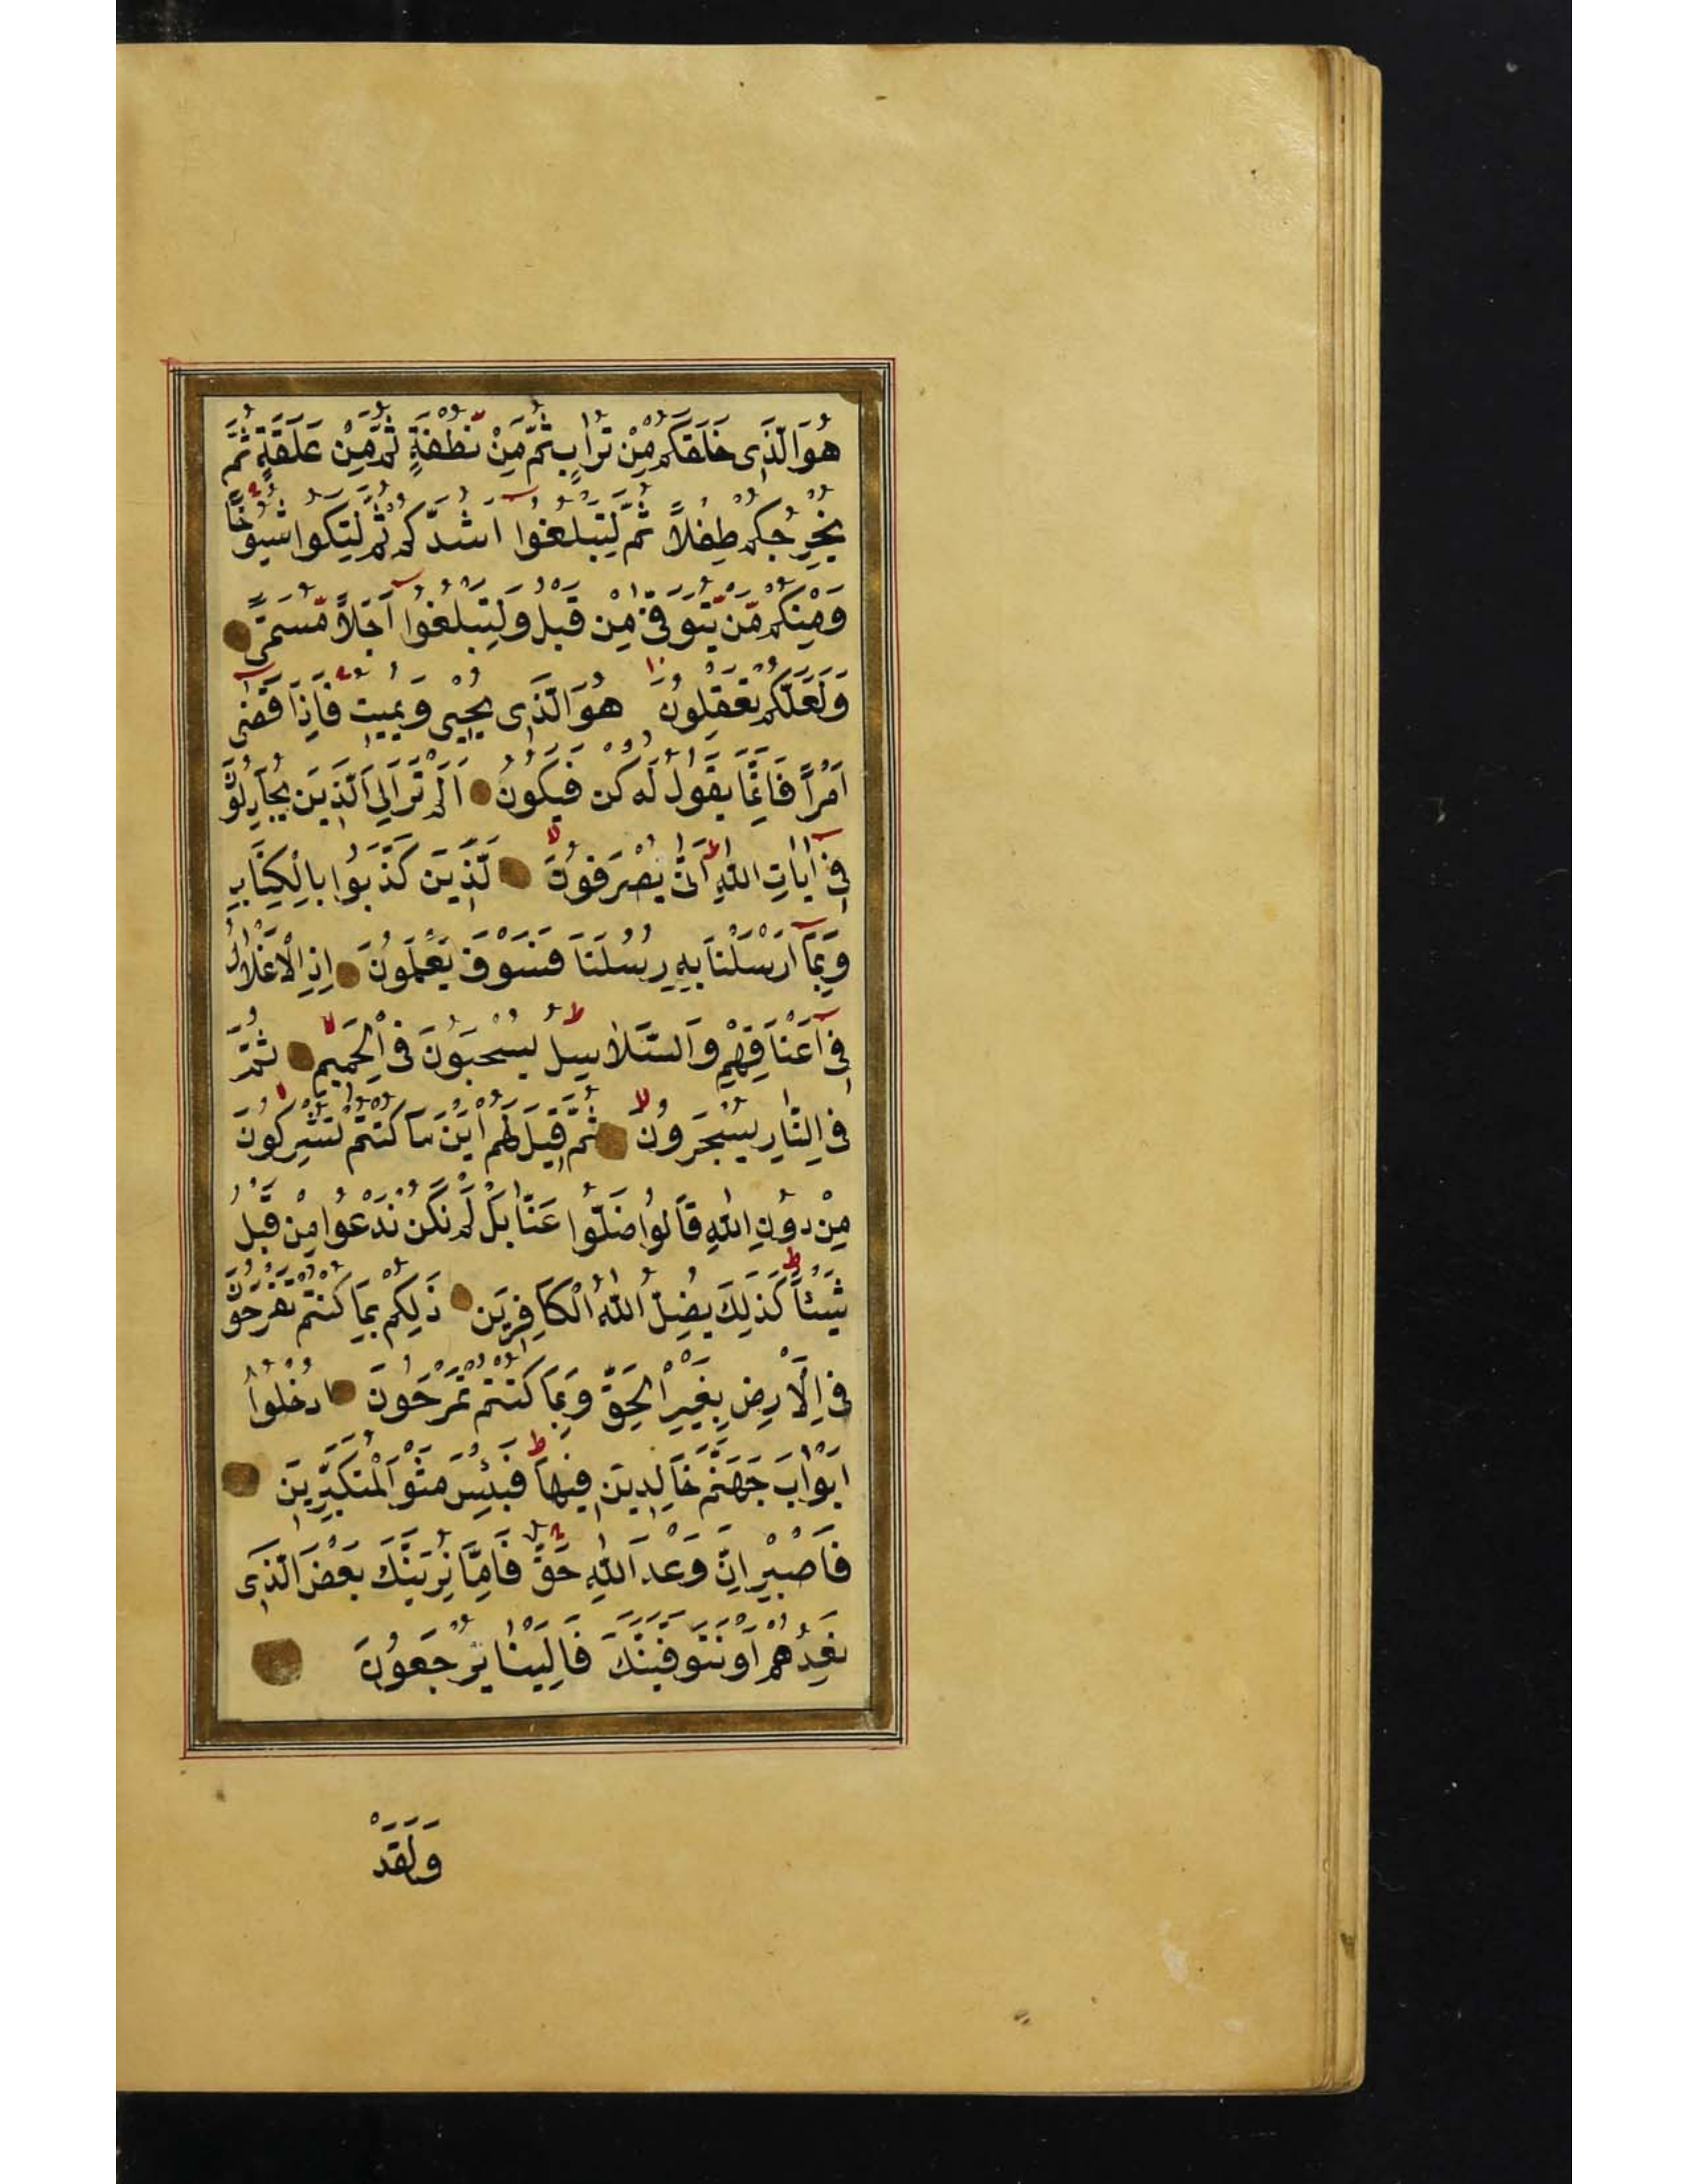 هُوَ الَّذِى خَلَقَكُمْ مِنْ تُرَابٍ ثُمَّ مِنْ نُطْفَةٍ ثُمَّ مِنْ عَلَقَةٍ ثُمَّ
يُخْرِجُكُمْ طِفْلاً ثُمَّ لِتَبْلُغُوا اَشُدَّكُمْ ثُمَّ لِتَكُوا شُيُوخًا
وَمِنْكُمْ مَّنْ يُّتَوَفّٰى مِنْ قَبْلُ وَلِتَبْلُغُوا اَجَلاً مُّسَمًّى
وَلَعَلَّكُمْ تَعْقِلُونَ هُوَ الَّذِى يُحْيِى وَيُمِيتُ فَاِذَا قَضٰى
اَمْرًا فَاِنَّمَا يَقُولُ لَهُ كُنْ فَيَكُونُ اَلَمْ تَرَ اِلَى الَّذِينَ يُجَادِلُونَ
فِى اٰيَاتِ اللّٰهِ اَنّٰى يُصْرَفُونَ لَّذِينَ كَذَّبُوا بِالْكِتَابِ
وَبِمَا اَرْسَلْنَا بِهِ رُسُلَنَا فَسَوْفَ يَعْلَمُونَ اِذِ الْاَغْلَالُ
فِى اَعْنَاقِهِمْ وَالسَّلَاسِلُ يُسْحَبُونَ فِى الْحَمِيمِ ثُمَّ
فِى النَّارِ يُسْجَرُونَ ثُمَّ قِيلَ لَهُمْ اَيْنَ مَا كُنْتُمْ تُشْرِكُونَ
مِنْ دُونِ اللّٰهِ قَالُوا ضَلُّوا عَنَّا بَلْ لَمْ نَكُنْ نَدْعُوا مِنْ قَبْلُ
شَيْئًا كَذٰلِكَ يُضِلُّ اللّٰهُ الْكَافِرِينَ ذٰلِكُمْ بِمَا كُنْتُمْ تَفْرَحُونَ
فِى الْاَرْضِ بِغَيْرِ الْحَقِّ وَبِمَا كُنْتُمْ تَمْرَحُونَ اُدْخُلُوا
اَبْوَابَ جَهَنَّمَ خَالِدِينَ فِيهَا فَبِئْسَ مَثْوَ الْمُتَكَبِّرِينَ
فَاصْبِرْ اِنَّ وَعْدَ اللّٰهِ حَقٌّ فَاِمَّا نُرِيَنَّكَ بَعْضَ الَّذِى
نَعِدُهُمْ اَوْ نَتَوَفَّيَنَّكَ فَاِلَيْنَا يُرْجَعُونَ
وَلَقَدْ